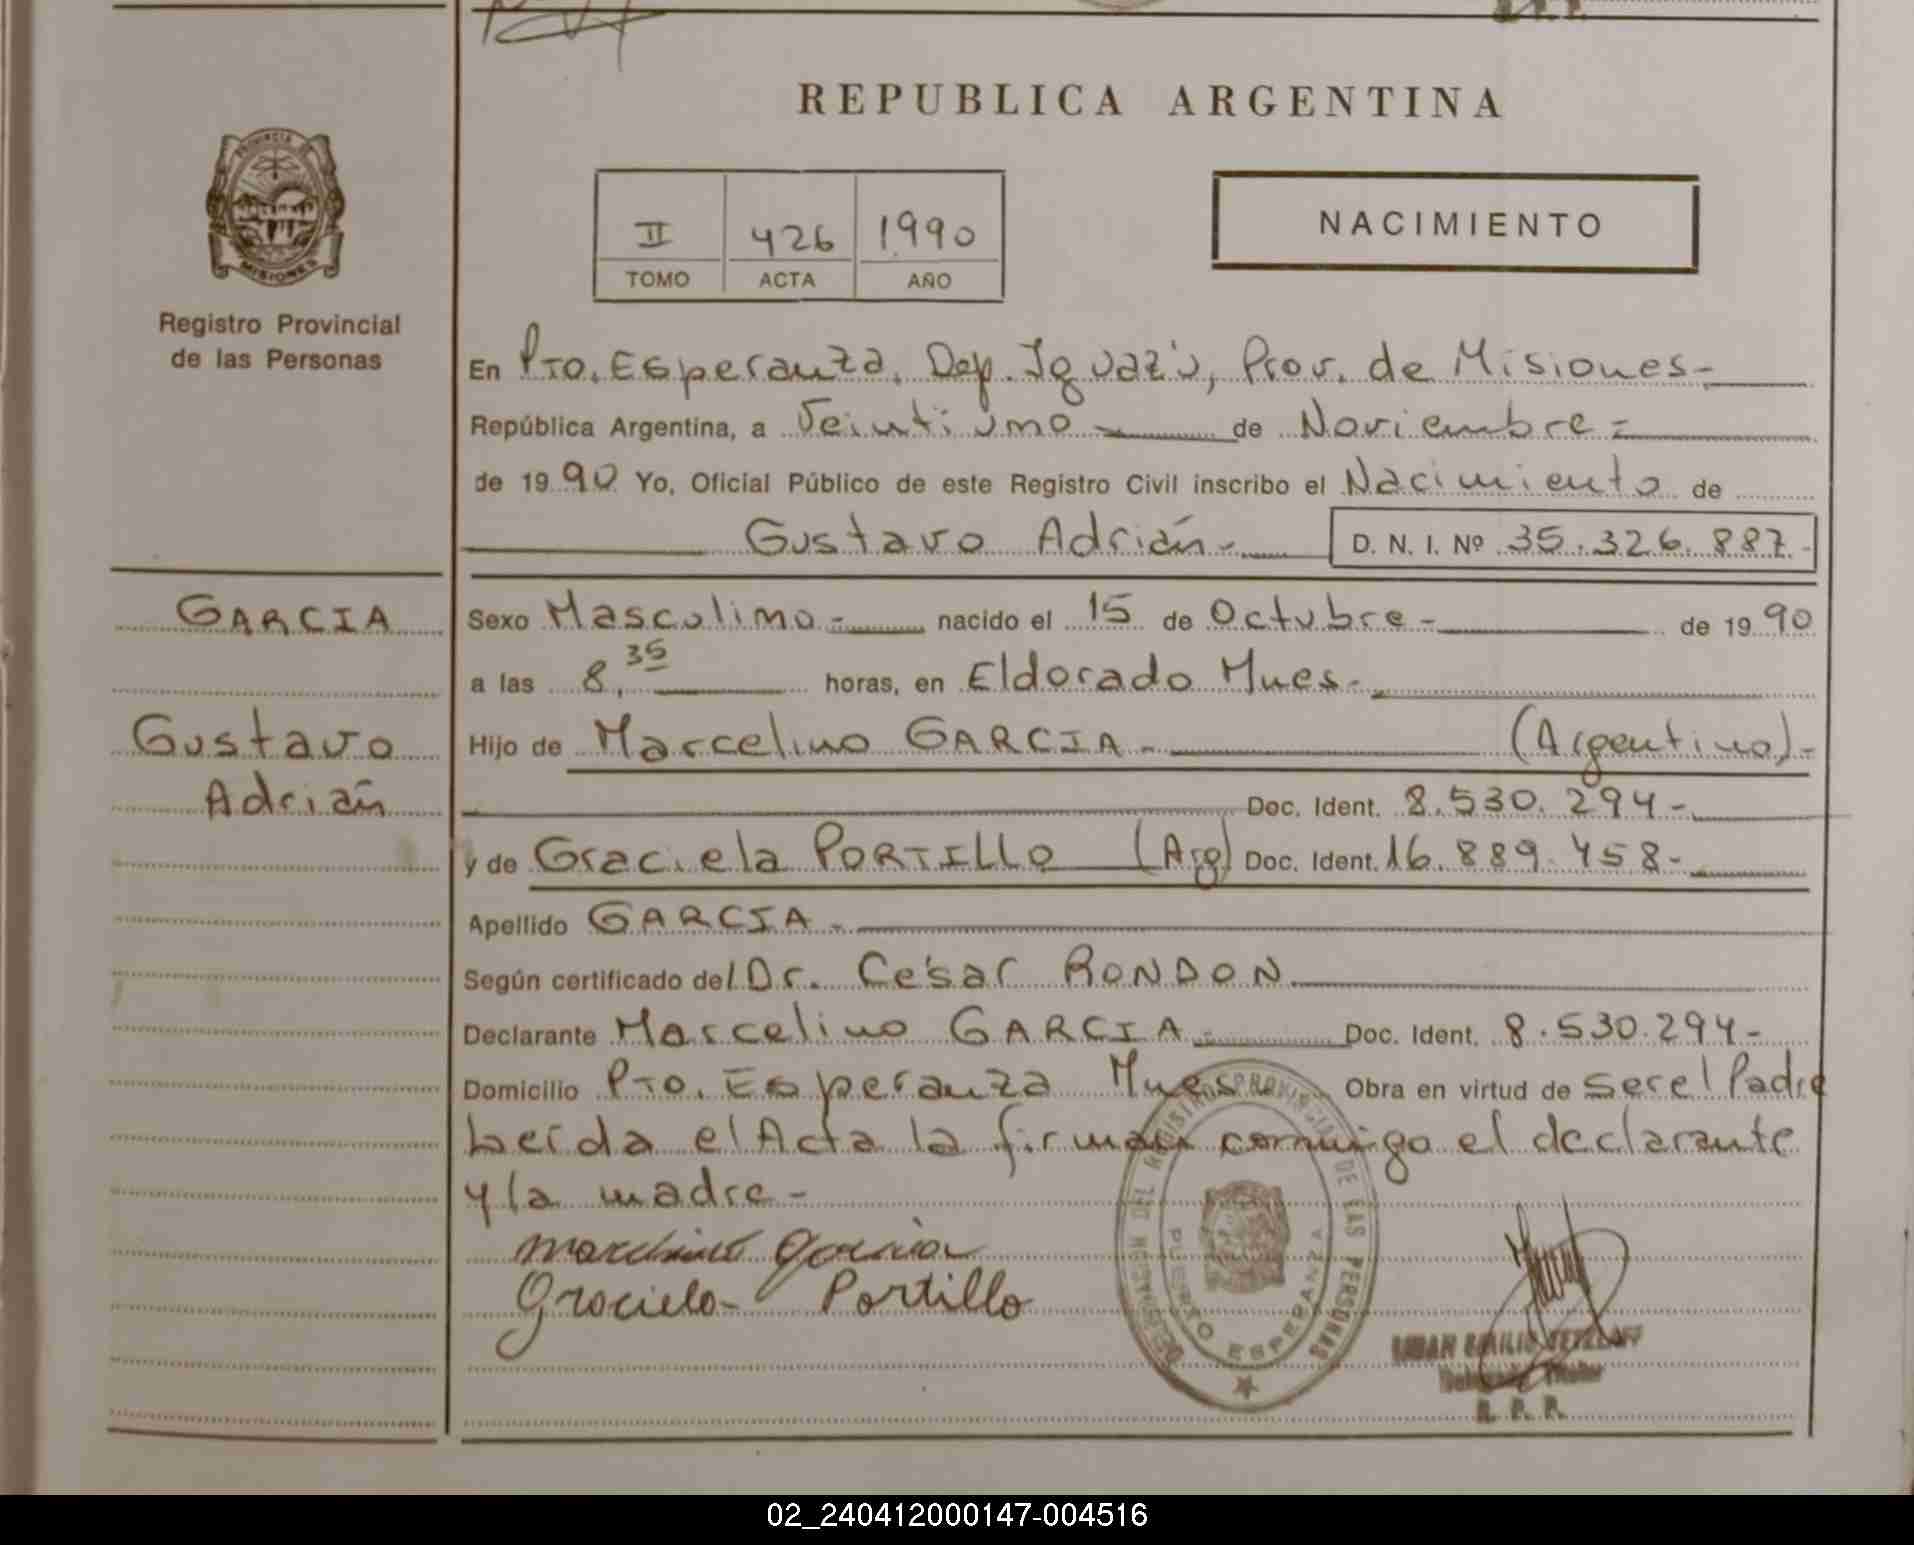 REPUBLICA ARGENTINA
PROVINCIA DE
MISIONES
Registro Provincial
de las Personas
II 426 1990
TOMO ACTA AÑO
NACIMIENTO
En Pto. Esperanza, Dep. Iguazú, Prov. de Misiones-
República Argentina, a Veintiuno de Noviembre =
de 1990 Yo, Oficial Público de este Registro Civil inscribo el Nacimiento de
Gustavo Adrián- D. N. I. Nº 35.326.887.-
GARCIA
Gustavo
Adrián
Sexo Masculino - nacido el 15 de Octubre - de 1990
a las 8,35 horas, en Eldorado Mnes-
Hijo de Marcelino GARCIA - (Argentino)-
Doc. Ident. 8.530.294-
y de Graciela PORTILLO (Arg) Doc. Ident. 16.889.458-
Apellido GARCIA -
Según certificado del Dr. César RONDON
Declarante Marcelino GARCIA - Doc. Ident. 8.530.294-
Domicilio Pto. Esperanza Mnes - Obra en virtud de ser el Padre
Leída el Acta la firman conmigo el declarante
y la madre -
Marcelino Garcia
Graciela Portillo
DELEGACION DEL REGISTRO PROVINCIAL DE LAS PERSONAS
PUERTO ESPERANZA
Titular
R. P. P.
02_240412000147-004516